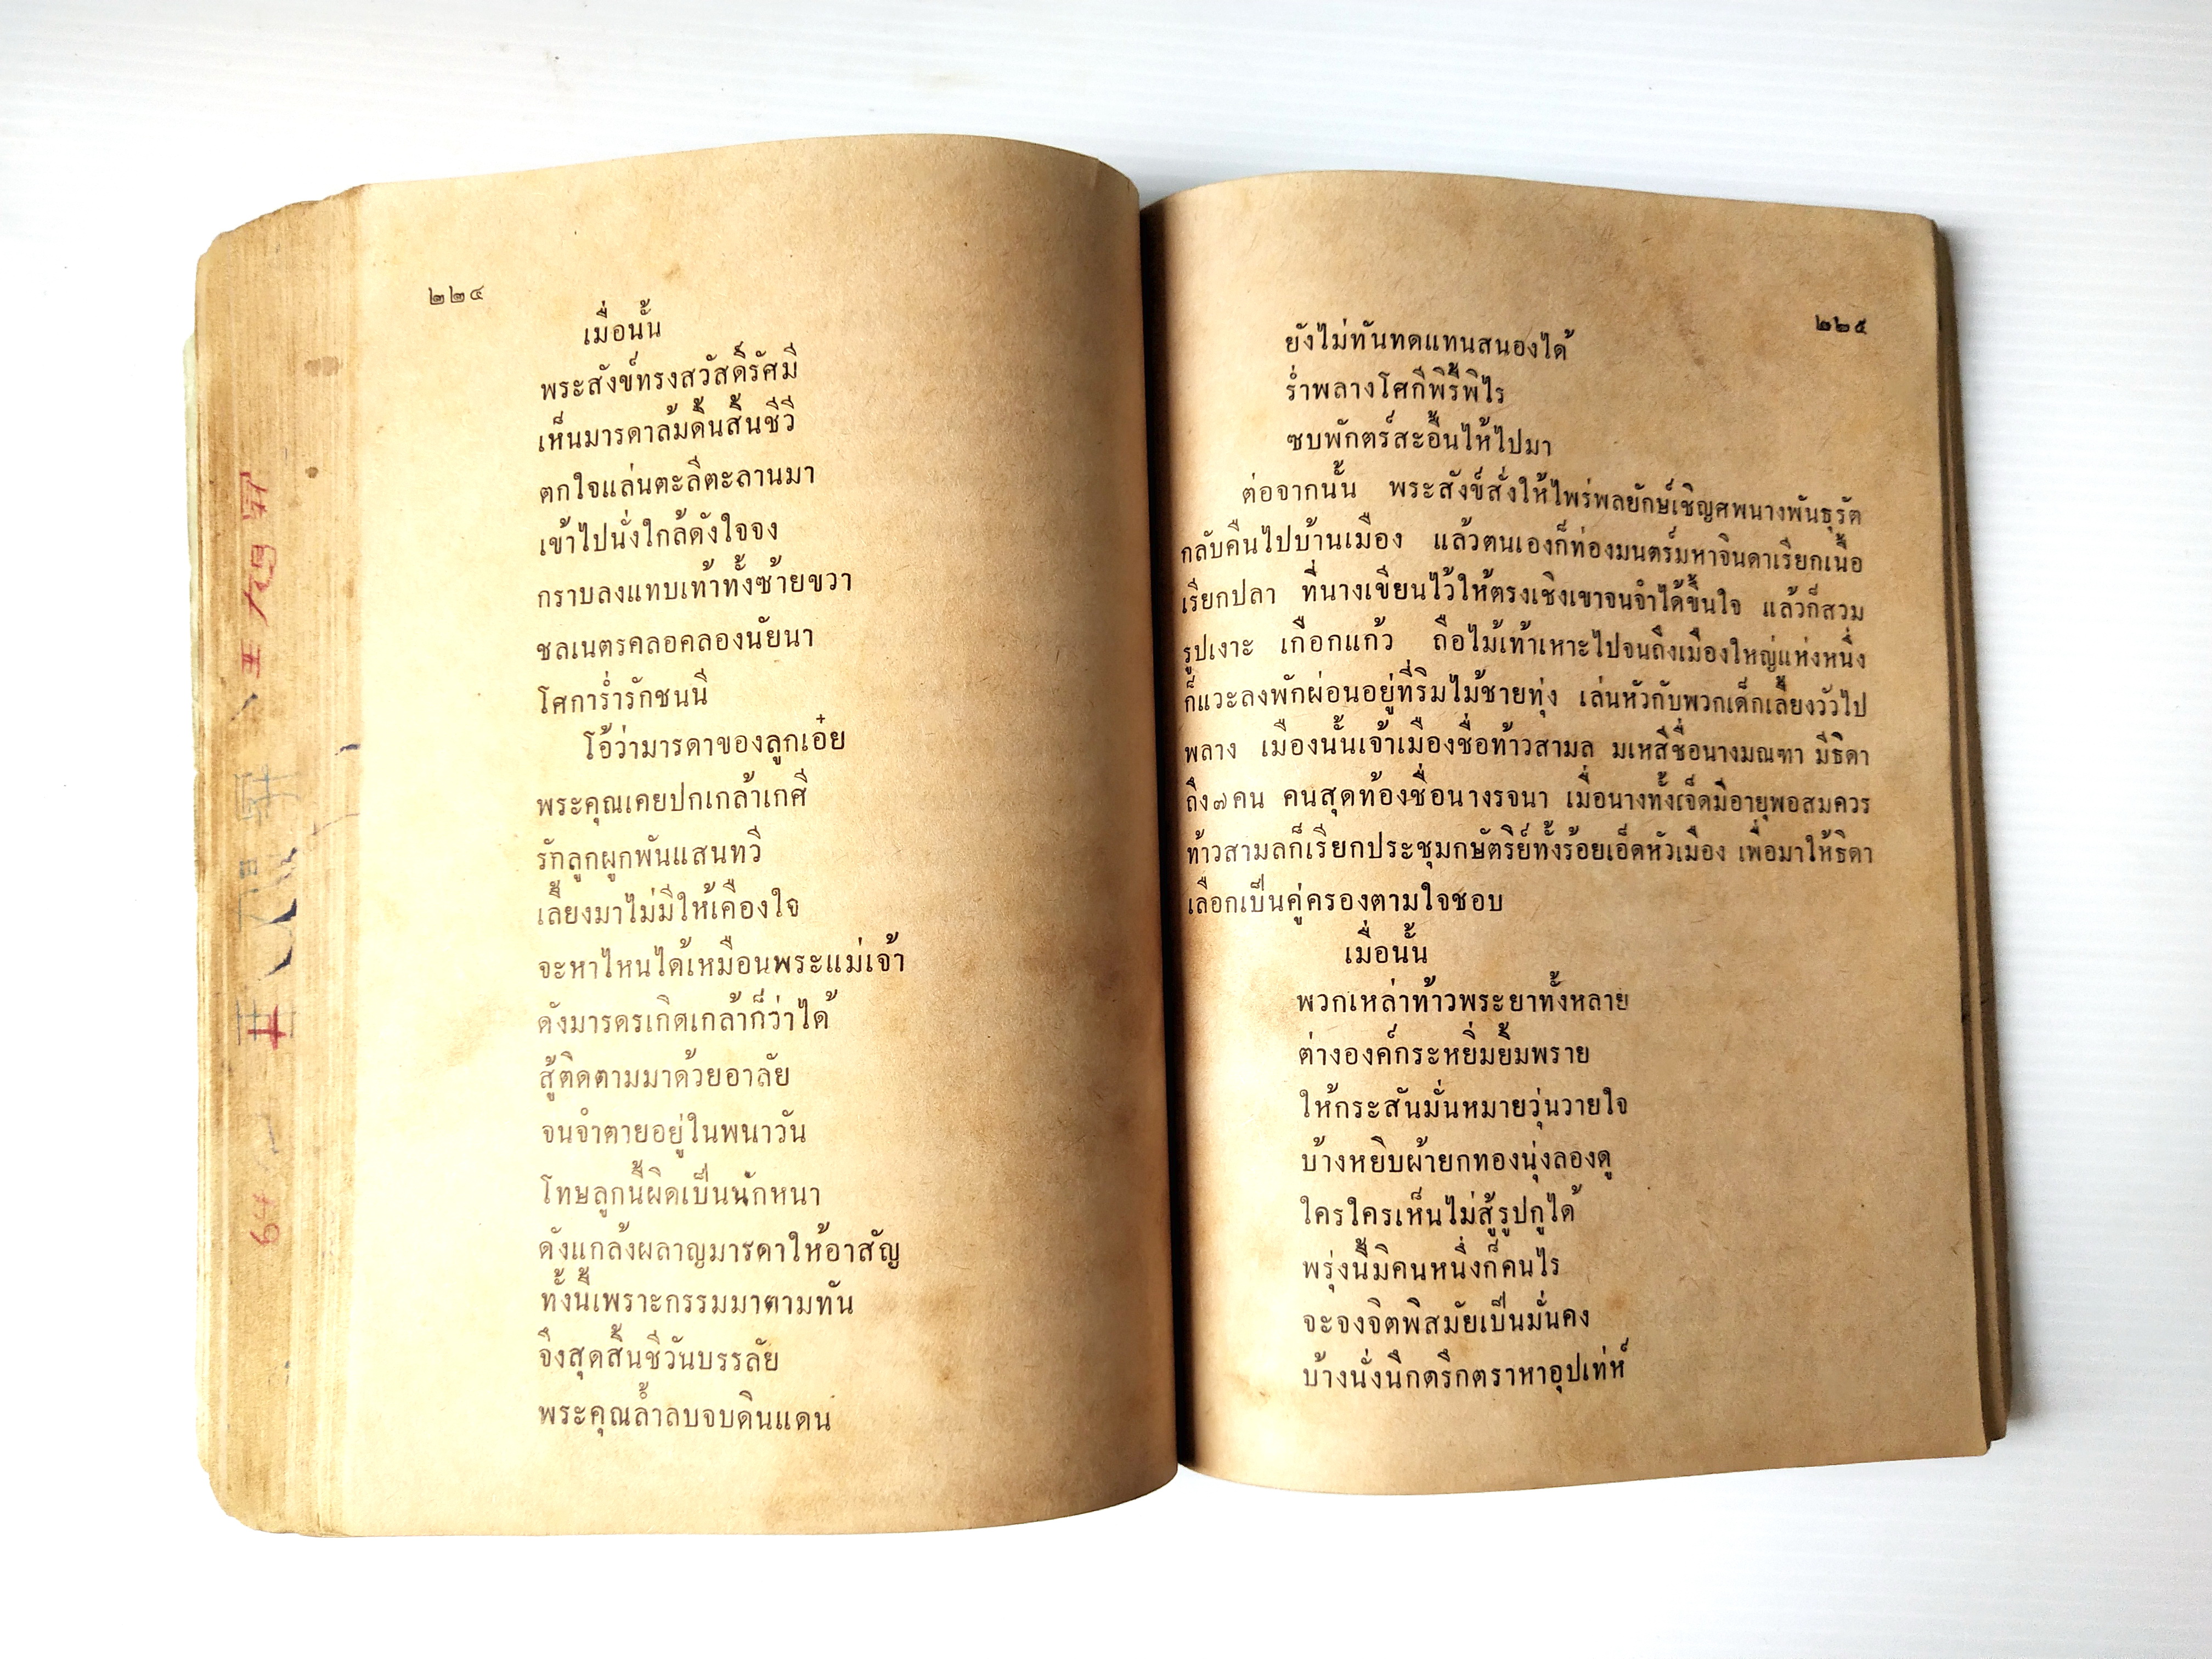 ๒๒๔
เมื่อนั้น
พระสังข์ทรงสวัสดิ์รัศมี
เห็นมารดาล้มดิ้นสิ้นชีวี
ตกใจแล่นตะลีตะลานมา
เข้าไปนั่งใกล้ดังใจจง
กราบลงแทบเท้าทั้งซ้ายขวา
ชลเนตรคลอคลองนัยนา
โศการ่ำรักชนนี
โอ้ว่ามารดาของลูกเอ๋ย
พระคุณเคยปกเกล้าเกศี
รักลูกผูกพันแสนทวี
เลี้ยงมาไม่มีให้เคืองใจ
จะหาไหนได้เหมือนพระแม่เจ้า
ดังมารดรเกิดเกล้าก็ว่าได้
สู้ติดตามมาด้วยอาลัย
จนจำตายอยู่ในพนาวัน
โทษลูกนี้ผิดเป็นนักหนา
ดังแกล้งผลาญมารดาให้อาสัญ
ทั้งนี้เพราะกรรมมาตามทัน
จึงสุดสิ้นชีวันบรรลัย
พระคุณล้ำลบจบดินแดน
๒๒๕
ยังไม่ทันทดแทนสนองได้
ร่ำพลางโศกีพิรี้พิไร
ซบพักตร์สะอื้นไห้ไปมา
ต่อจากนั้น พระสังข์สั่งให้ไพร่พลยักษ์เชิญศพนางพันธุรัต
กลับคืนไปบ้านเมือง แล้วตนเองก็ท่องมนตร์มหาจินดาเรียกเนื้อ
เรียกปลา ที่นางเขียนไว้ให้ตรงเชิงเขาจนจำได้ขึ้นใจ แล้วก็สวม
รูปเงาะ เกือกแก้ว ถือไม้เท้าเหาะไปจนถึงเมืองใหญ่แห่งหนึ่ง
ก็แวะลงพักผ่อนอยู่ที่ริมไม้ชายทุ่ง เล่นหัวกับพวกเด็กเลี้ยงวัวไป
พลาง เมืองนั้นเจ้าเมืองชื่อท้าวสามล มเหสีชื่อนางมณฑา มีธิดา
ถึง๗คน คนสุดท้องชื่อนางรจนา เมื่อนางทั้งเจ็ดมีอายุพอสมควร
ท้าวสามลก็เรียกประชุมกษัตริย์ทั้งร้อยเอ็ดหัวเมือง เพื่อมาให้ธิดา
เลือกเป็นคู่ครองตามใจชอบ
เมื่อนั้น
พวกเหล่าท้าวพระยาทั้งหลาย
ต่างองค์กระหยิ่มยิ้มพราย
ให้กระสันมั่นหมายวุ่นวายใจ
บ้างหยิบผ้ายกทองนุ่งลองดู
ใครใครเห็นไม่สู้รูปกูได้
พรุ่งนี้มิคนหนึ่งก็คนไร
จะจงจิตพิสมัยเป็นมั่นคง
บ้างนั่งนึกตรึกตราหาอุปเท่ห์